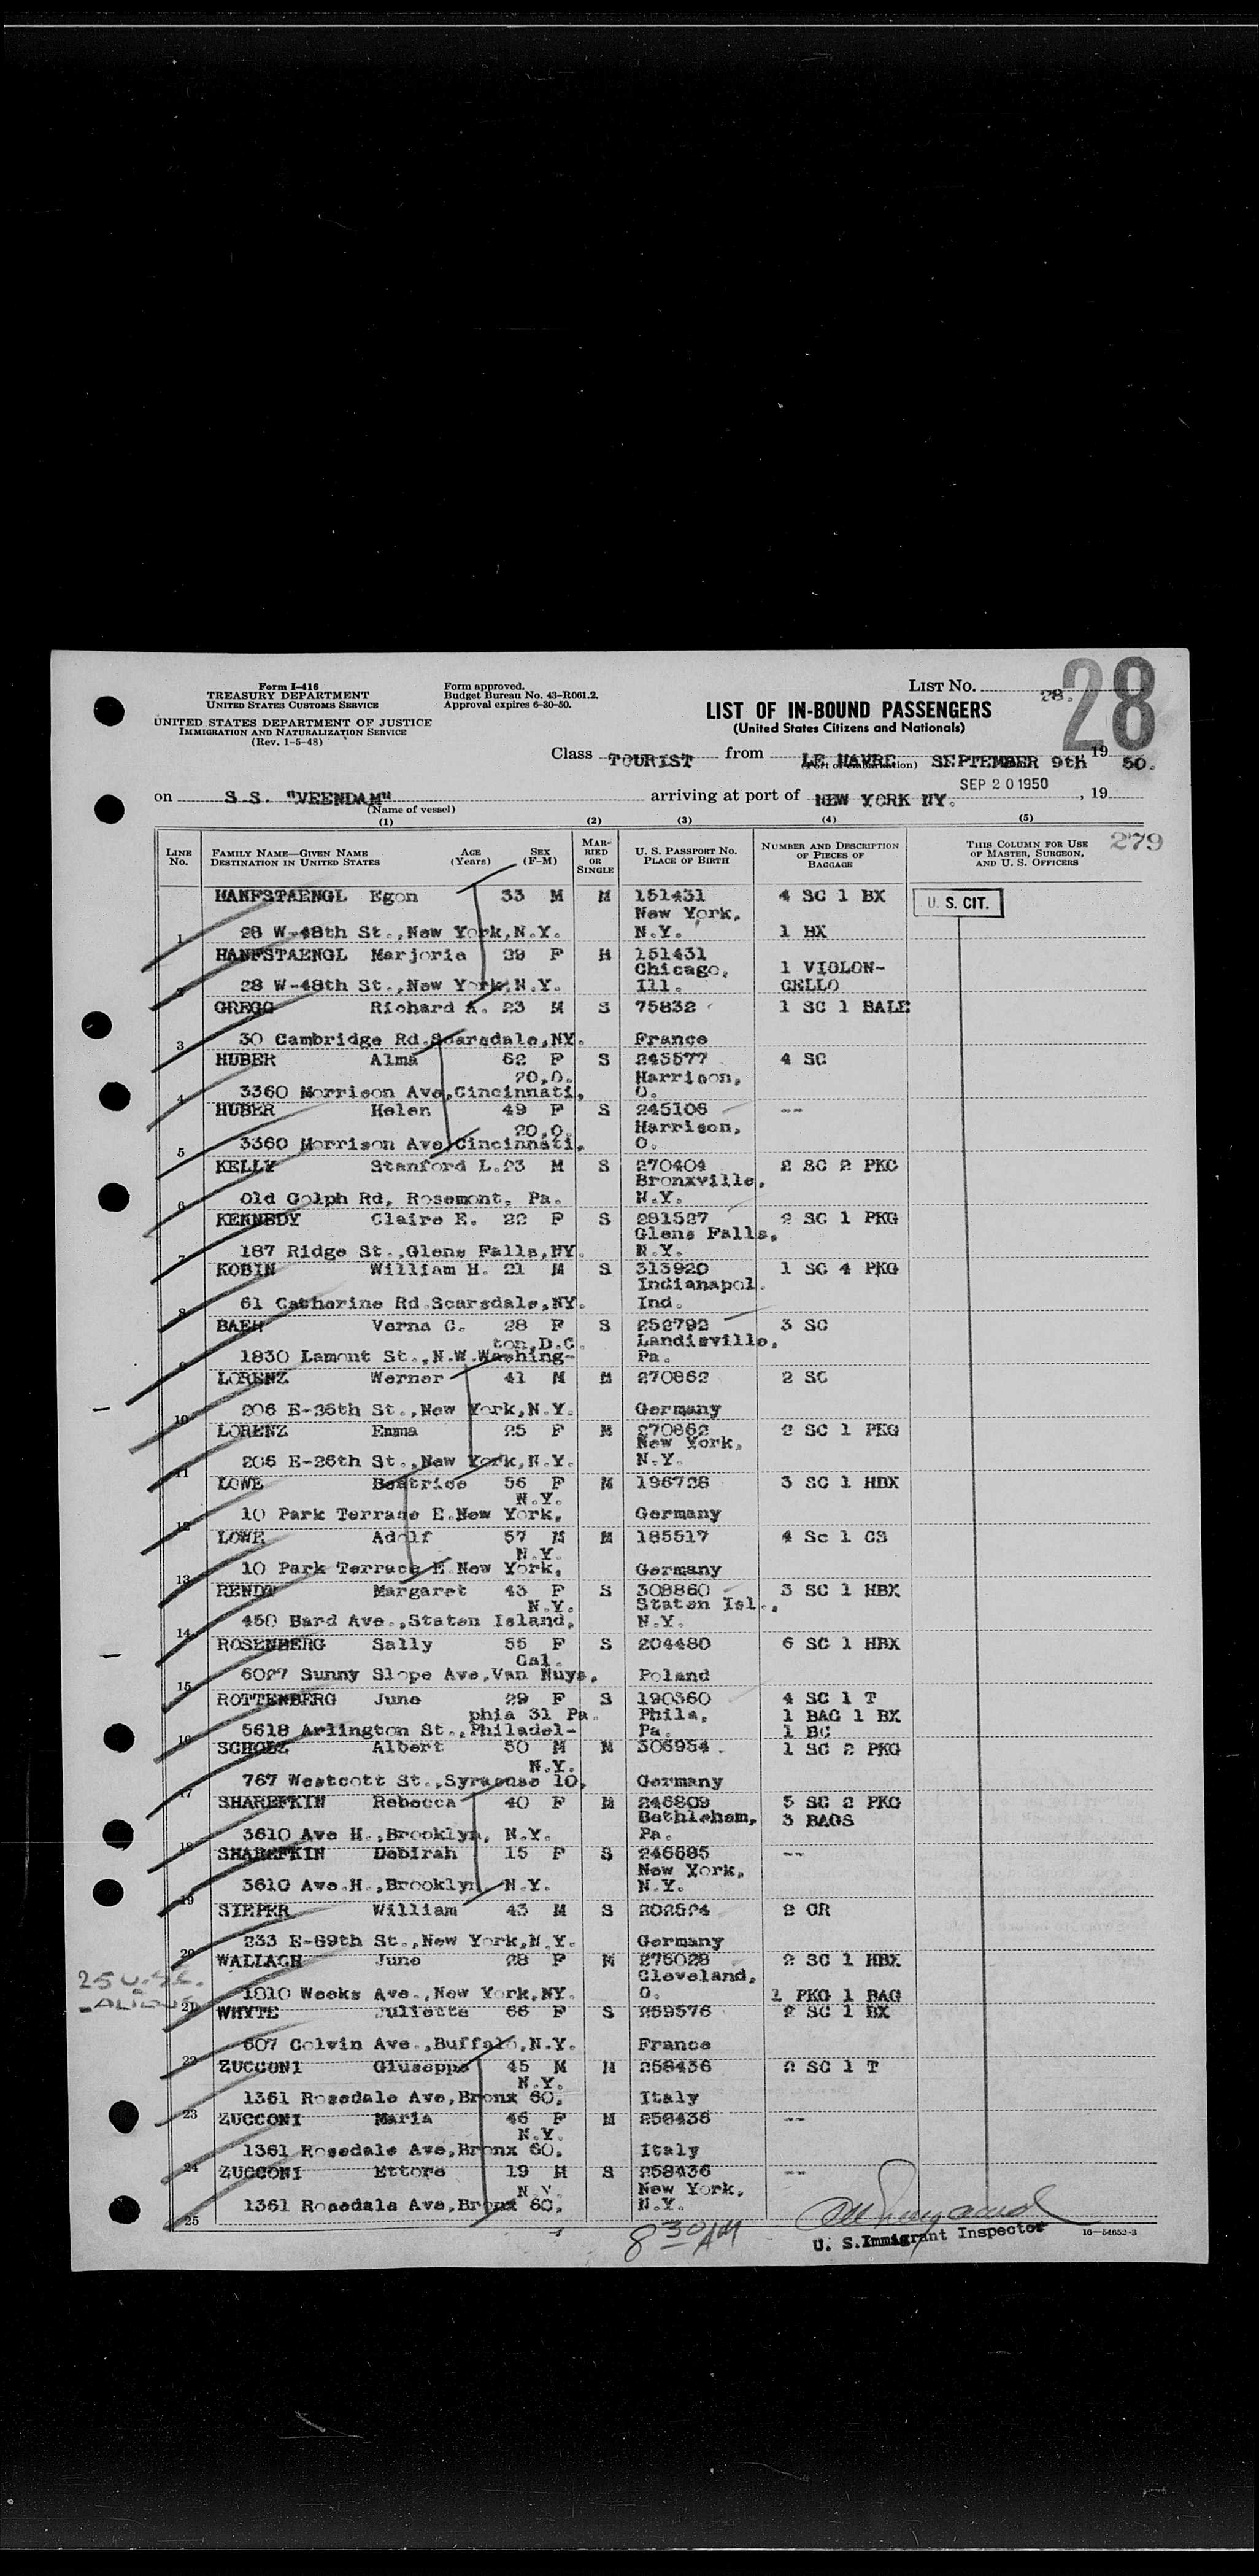 Form I-416
TREASURY DEPARTMENT
UNITED STATES CUSTOMS SERVICE
UNITED STATES DEPARTMENT OF JUSTICE
IMMIGRATION AND NATURALIZATION SERVICE
(Rev. 1-5-48)
Form approved.
Budget Bureau No. 43-R061.2.
Approval expires 6-30-50.
LIST NO. 28.
28
LIST OF IN-BOUND PASSENGERS
(United States Citizens and Nationals)
Class TOURIST from LE HAVRE SEPTEMBER 9th 19 50.
(Port of embarkation)
on S.S. "VEENDAM" arriving at port of NEW YORK NY. SEP 20 1950, 19
(Name of vessel)
(1) (2) (3) (4) (5)
279
LINE NO. FAMILY NAME—GIVEN NAME DESTINATION IN UNITED STATES AGE (Years) SEX (F-M) MARRIED OR SINGLE U. S. PASSPORT NO. PLACE OF BIRTH NUMBER AND DESCRIPTION OF PIECES OF BAGGAGE THIS COLUMN FOR USE OF MASTER, SURGEON, AND U. S. OFFICERS
HANFSTAENGL Egon 33 M M 151431 4 SC 1 BX U. S. CIT.
New York,
1 28 W-48th St.,New York,N.Y. N.Y. 1 BX
HANFSTAENGL Marjorie 29 F M 151431
Chicago, 1 VIOLON-
2 28 W-48th St.,New York,N.Y. Ill. CELLO
GREGG Richard A. 23 M S 75832 1 SC 1 BALE
3 30 Cambridge Rd.Scarsdale,NY. France
HUBER Alma 62 F S 243577 4 SC
20,O. Harrison,
4 3360 Morrison Ave,Cincinnati, O.
HUBER Helen 49 F S 245106 --
20,O. Harrison,
5 3360 Morrison Ave,Cincinnati, O.
KELLY Stanford L. 23 M S 270404 2 SC 2 PKG
Bronxville,
6 Old Golph Rd, Rosemont, Pa. N.Y.
KENNEDY Claire E. 22 F S 281527 2 SC 1 PKG
Glens Falls,
7 187 Ridge St.,Glens Falls,NY. N.Y.
KOBIN William H. 21 M S 313920 1 SC 4 PKG
Indianapol.
8 61 Catherine Rd.Scarsdale,NY. Ind.
BAER Verna C. 28 F S 252792 3 SC
ton,D.C. Landisville,
9 1830 Lamont St.,N.W.Washing- Pa.
LORENZ Werner 41 M M 270862 2 SC
10 206 E-26th St.,New York,N.Y. Germany
LORENZ Emma 25 F M 270862 2 SC 1 PKG
New York,
11 206 E-26th St.,New York,N.Y. N.Y.
LOWE Beatrice 56 F M 196728 3 SC 1 HBX
N.Y.
12 10 Park Terrace E.New York, Germany
LOWE Adolf 57 M M 185517 4 Sc 1 CS
N.Y.
13 10 Park Terrace E.New York, Germany
RENDT Margaret 43 F S 308860 3 SC 1 HBX
N.Y. Staten Isl.,
14 450 Bard Ave.,Staten Island, N.Y.
ROSENBERG Sally 55 F S 204480 6 SC 1 HBX
Cal.
15 6027 Sunny Slope Ave,Van Nuys, Poland
ROTTENBERG June 29 F S 190360 4 SC 1 T
phia 31 Pa. Phila, 1 BAG 1 BX
16 5618 Arlington St.,Philadel- Pa. 1 BC
SCHOLZ Albert 50 M M 306954 1 SC 2 PKG
N.Y.
17 767 Westcott St.,Syracuse 10, Germany
SHAREFKIN Rebecca 40 F M 246809 5 SC 2 PKG
Bethlehem, 3 BAGS
18 3610 Ave H.,Brooklyn, N.Y. Pa.
SHAREFKIN Debirah 15 F S 246685 --
New York,
19 3610 Ave.H.,Brooklyn N.Y. N.Y.
SIEPER William 43 M S 202524 2 CR
20 233 E-89th St.,New York,N.Y. Germany
WALLACH June 28 F M 276028 2 SC 1 HBX
25 U.S.C. Cleveland,
21 1810 Weeks Ave.,New York,NY. O. 1 PKG 1 BAG
WHYTE Juliette 66 F S 259576 2 SC 1 BX
22 607 Colvin Ave.,Buffalo,N.Y. France
ZUCCONI Giuseppe 45 M M 258436 2 SC 1 T
N.Y.
23 1361 Rosedale Ave,Bronx 60, Italy
ZUCCONI Maria 46 F M 258436 --
N.Y.
24 1361 Rosedale Ave,Bronx 60, Italy
ZUCCONI Ettore 19 M S 258436 --
N.Y. New York,
25 1361 Rosedale Ave,Bronx 60, N.Y.
8 30 AM
U. S. Immigrant Inspector
16—54652-3